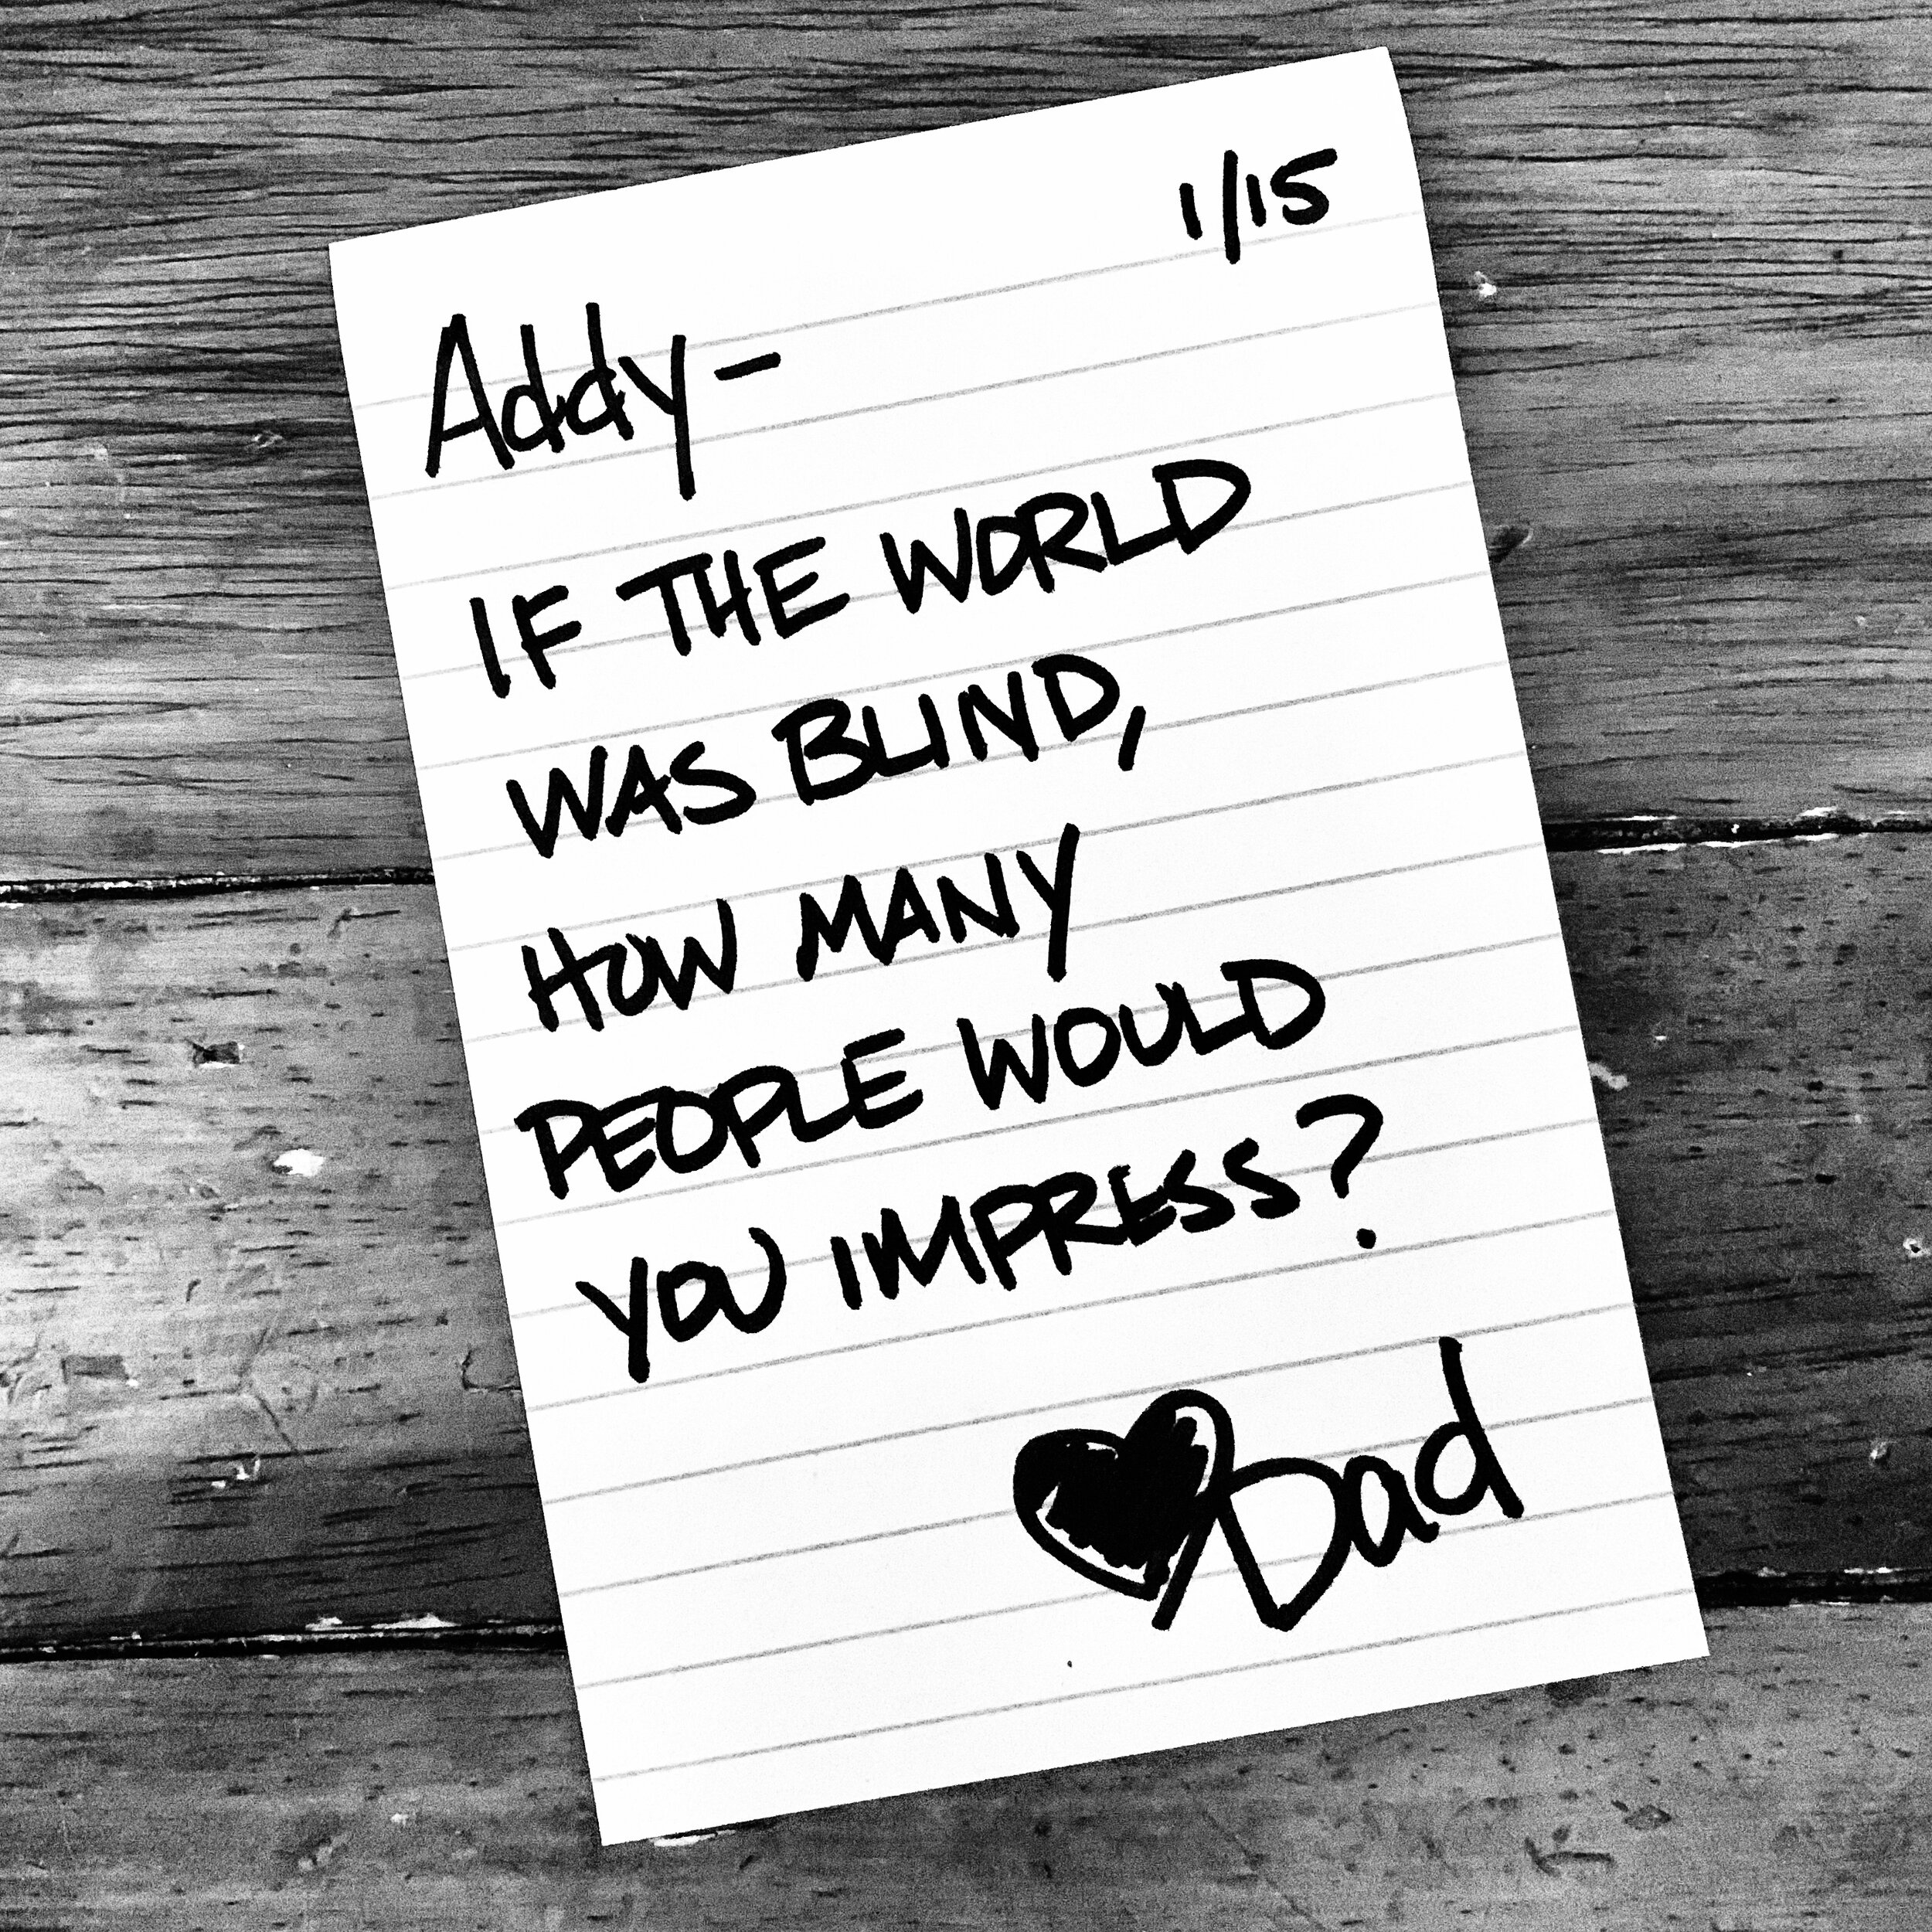 1/15
Addy-
IF THE WORLD
WAS BLIND,
HOW MANY
PEOPLE WOULD
YOU IMPRESS?
Dad